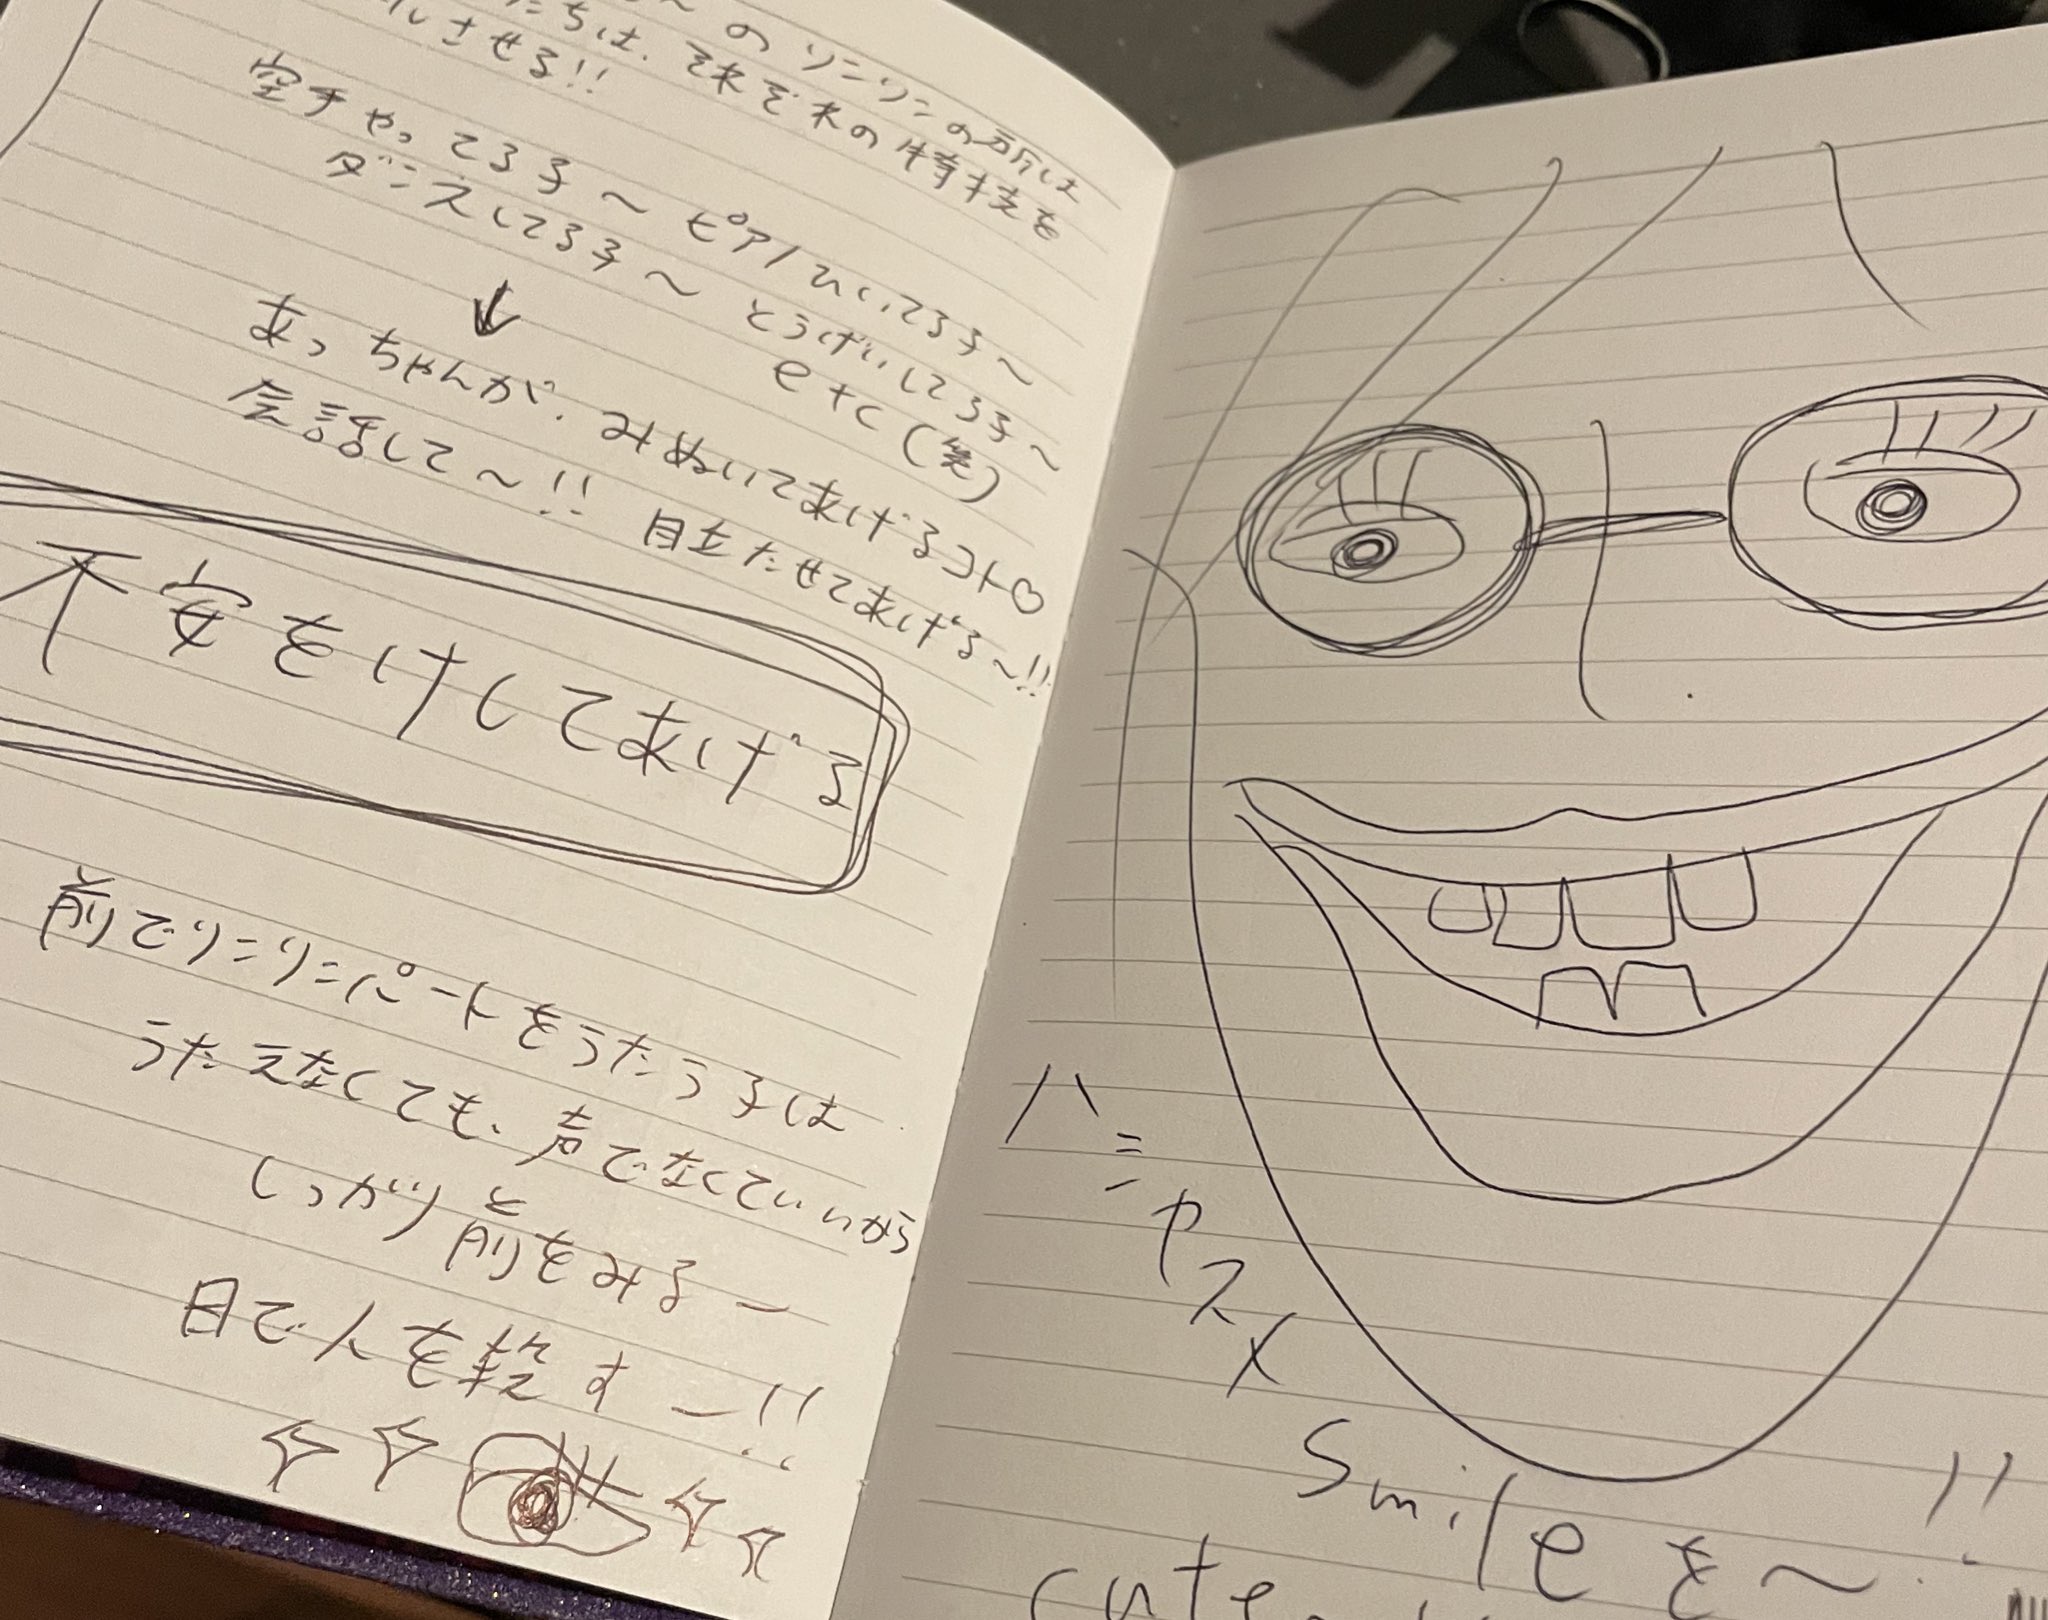 〜のリンリンの所は
たちは、それぞれの特技を
させる!!
空手やってる子〜ピアノひいてる子〜
ダンスしてる子〜とうげいしてる子〜
etc(笑)
↓
あっちゃんが、みぬいてあげるコト♡
会話して〜!! 目立たせてあげる〜!!
不安をけしてあげる
前でリンリンパートをうたう子は
うたえなくても、声でなくていいから
しっかり前をみるー
目で人を殺すー!!
ハニヤスメ
Smileを〜!!
cute